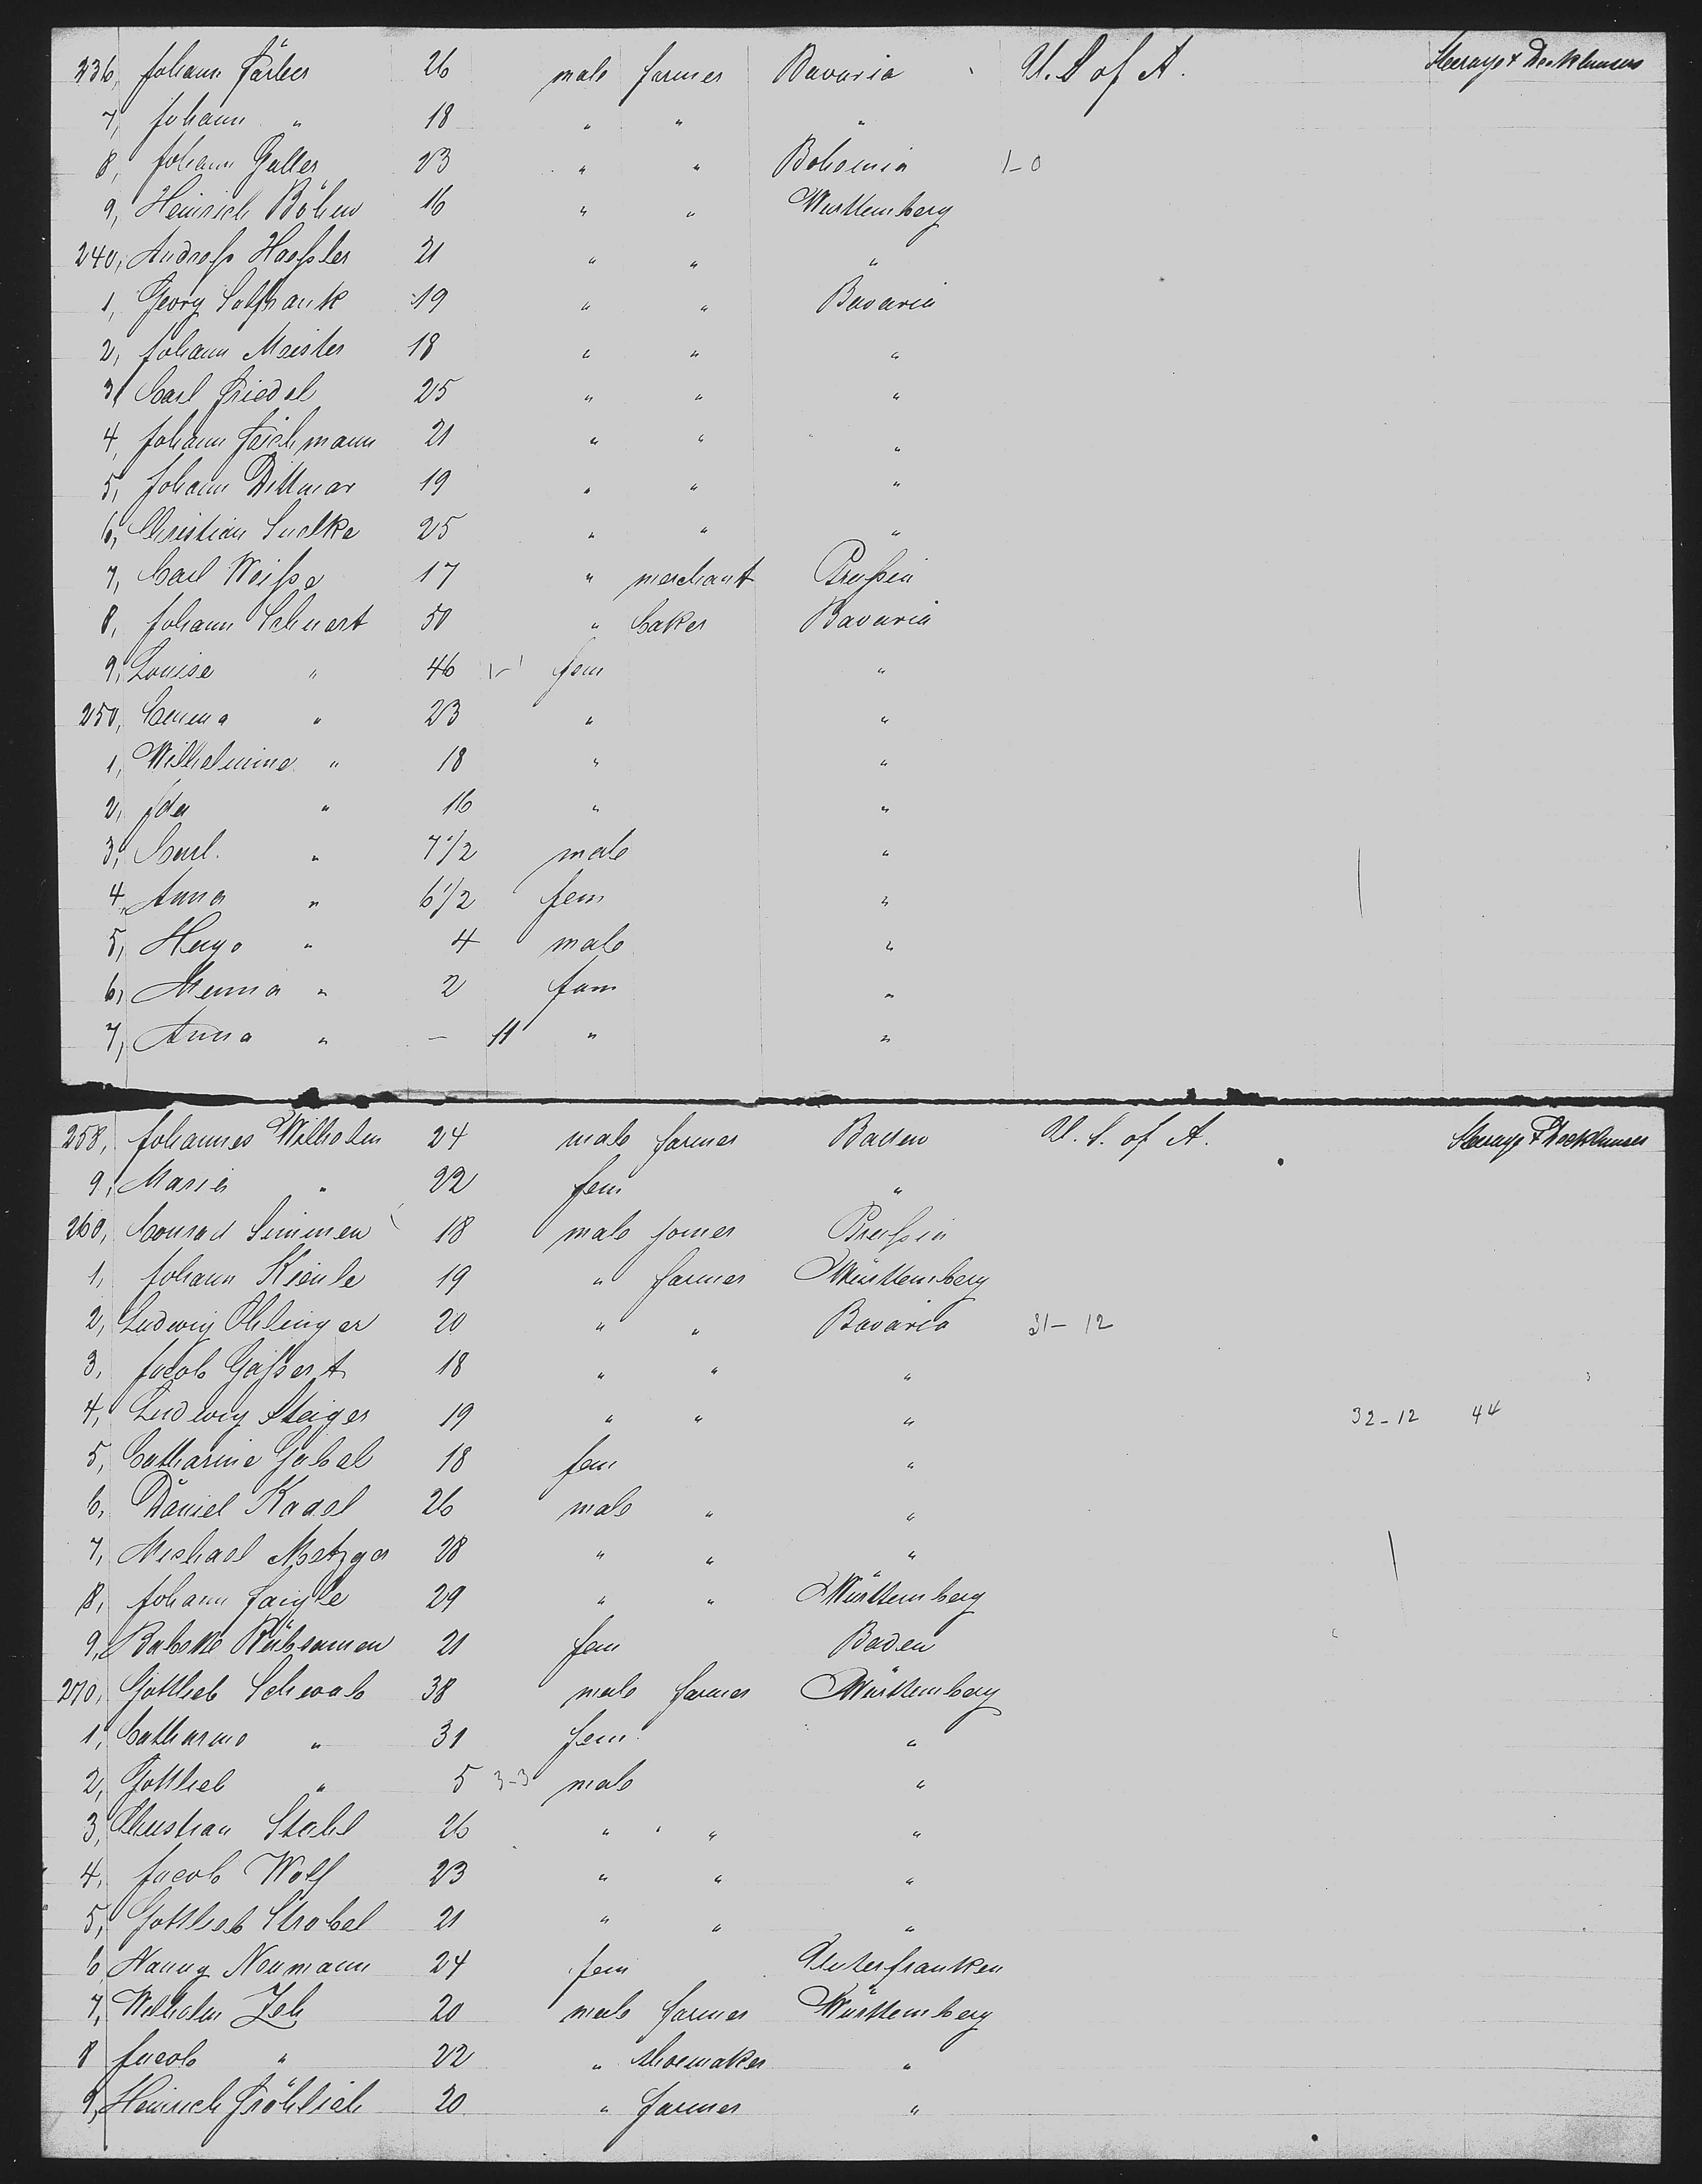 236, Johann Färber 26 male farmer Bavaria U. S of A. Steerage & Deckhouses
7, Johann " 18 " " "
8, Johann Galler 23 " " Bohemia 1-0
9, Heinrich Böhm 16 " " Wurttemberg
240, Andreß Haeßler 21 " " "
1, Georg Solfrank 19 " " Bavaria
2, Johann Meister 18 " " "
3, Carl Friedel 25 " " "
4, Johann Feichmann 21 " " "
5, Johann Dittmar 19 " " "
6, Christian 25 " " "
7, Carl Weisse 17 " merchant Prußia
8, Johann Schuert 50 " baker Bavaria
9, Louise " 46 fem "
250, Emma " 23 " "
1, Wilhelmine " 18 " "
2, Ida " 16 " "
3, Carl " 7 1/2 male "
4, Anna " 6 1/2 fem "
5, Hugo " 4 male "
6, Menna " 2 fem "
7, Anna " - 11 " "
258, Johannes Wilhelm 24 male farmer Baden U. S. of A. Steerage & Deckhouses
9, Maria " 22 fem "
260, Conrad Simmen 18 male joiner Prußia
1, Johann Kienle 19 " farmer Württemberg
2, Ludwig Ehlinger 20 " " Bavaria 31-12
3, Jacob Gaßert 18 " " "
4, Ludwig Steiger 19 " " " 32-12 44
5, Catharine Gabel 18 fem "
6, Daniel Kadel 26 male " "
7, Michael Metzger 28 " " "
8, Johann Faigle 29 " " Württemberg
9, Babette Rübsamen 21 fem Baden
270, Gottlieb Schwab 38 male farmer Württemberg
1, Catharine " 31 fem "
2, Gottlieb " 5 3-3 male "
3, Christian Stahl 26 " " "
4, Jacob Wolf 23 " " "
5, Gottlieb Strobel 21 " " "
6 Nanny Neumann 24 fem Unterfranken
7, Wilhelm Zeh 20 male farmer Württemberg
8 Jacob " 22 " shoemaker "
9, Heinrich Fröhlich 20 " farmer "